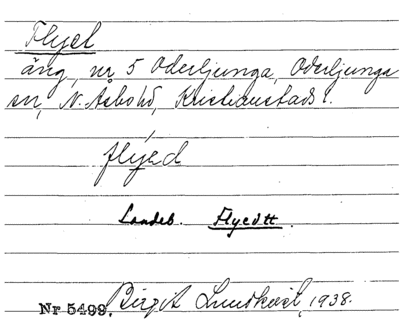 Flyet
äng, nr 5 Oderljunga, Oderljunga
sn, N. Åsbo hd, Kristianstads l.
flýed
Landeb. Flyedtt.
Nr 5499. Birgit Lundkvist, 1938.